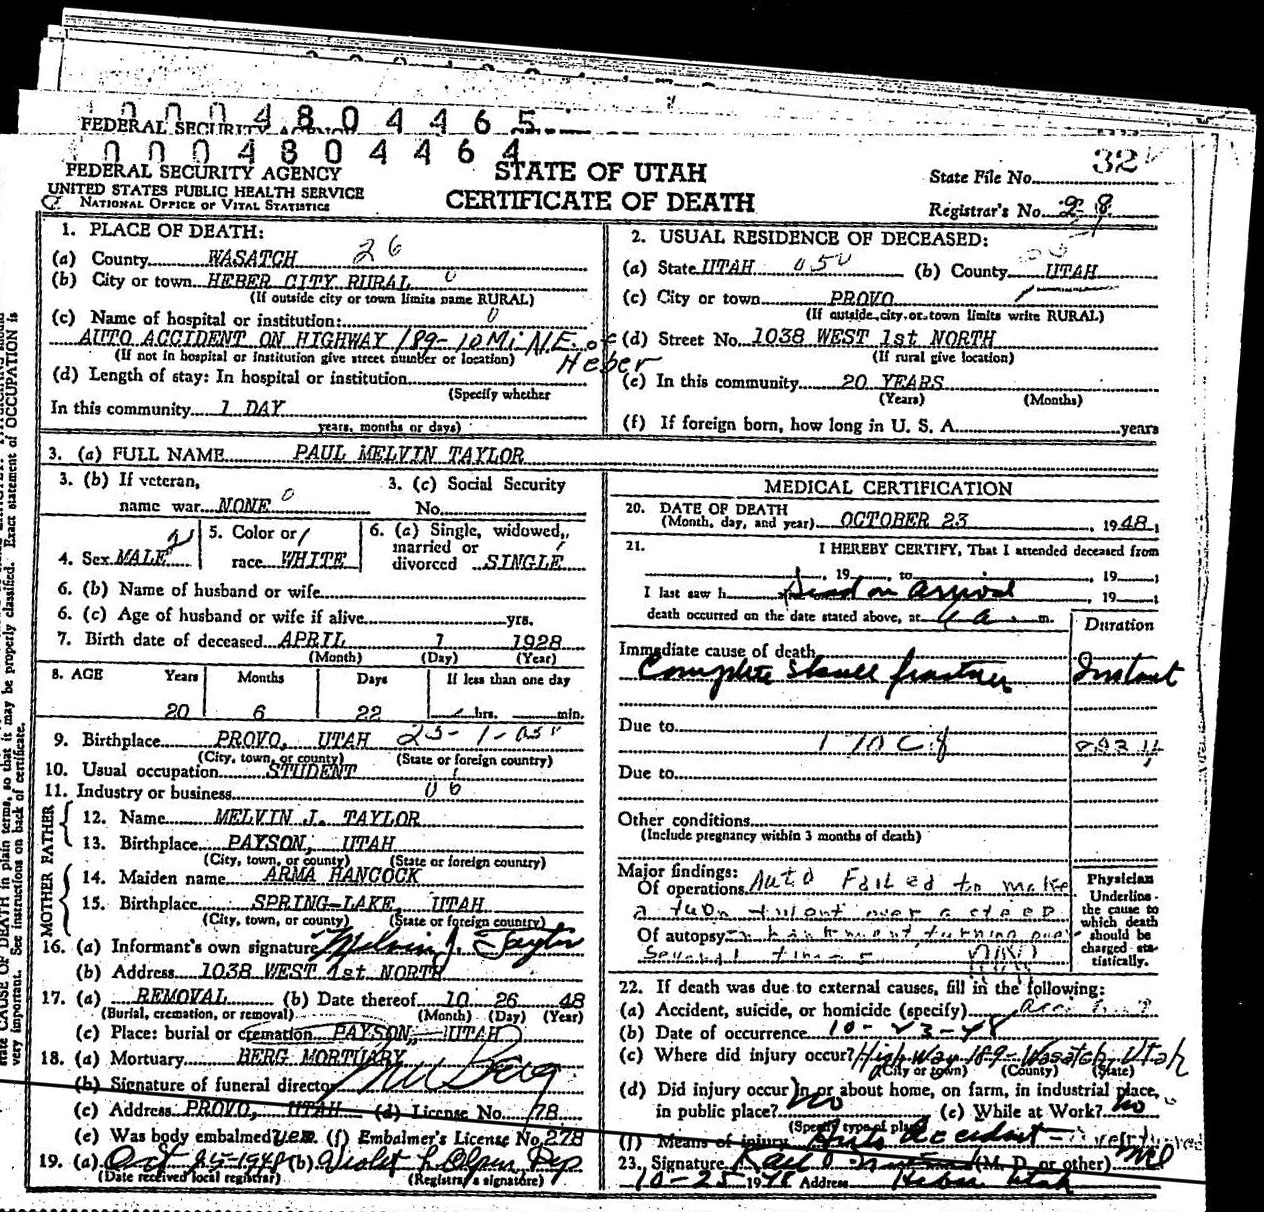 0004804465
FEDERAL SECURITY AGENCY
0004804464
FEDERAL SECURITY AGENCY
UNITED STATES PUBLIC HEALTH SERVICE
NATIONAL OFFICE OF VITAL STATISTICS
STATE OF UTAH
CERTIFICATE OF DEATH
State File No. 32
Registrar's No. 29
1. PLACE OF DEATH:
(a) County WASATCH 26
(b) City or town HEBER CITY RURAL 0
(If outside city or town limits name RURAL)
(c) Name of hospital or institution: 0
AUTO ACCIDENT ON HIGHWAY 189-10 Mi N.E. of Heber
(If not in hospital or institution give street number or location)
(d) Length of stay: In hospital or institution
(Specify whether
In this community 1 DAY
years, months or days)
2. USUAL RESIDENCE OF DECEASED:
(a) State UTAH 050 (b) County UTAH
(c) City or town PROVO
(If outside city or town limits write RURAL)
(d) Street No. 1038 WEST 1st NORTH
(If rural give location)
(e) In this community 20 YEARS
(Years) (Months)
(f) If foreign born, how long in U. S. A. years
3. (a) FULL NAME PAUL MELVIN TAYLOR
3. (b) If veteran,
name war NONE 0
3. (c) Social Security
No.
4. Sex MALE
5. Color or
race WHITE
6. (a) Single, widowed,
married or
divorced SINGLE
6. (b) Name of husband or wife
6. (c) Age of husband or wife if alive yrs.
7. Birth date of deceased APRIL 1 1928
(Month) (Day) (Year)
8. AGE Years Months Days If less than one day
20 6 22 hrs. min.
9. Birthplace PROVO, UTAH
(City, town, or county) (State or foreign country)
10. Usual occupation STUDENT
11. Industry or business 06
FATHER
12. Name MELVIN J. TAYLOR
13. Birthplace PAYSON, UTAH
(City, town, or county) (State or foreign country)
MOTHER
14. Maiden name ARMA HANCOCK
15. Birthplace SPRING-LAKE, UTAH
(City, town, or county) (State or foreign country)
16. (a) Informant's own signature Melvin J. Taylor
(b) Address 1038 WEST 1st NORTH
17. (a) REMOVAL (b) Date thereof 10 26 48
(Burial, cremation, or removal) (Month) (Day) (Year)
(c) Place: burial or cremation PAYSON, UTAH
18. (a) Mortuary BERG MORTUARY
(b) Signature of funeral director Berg
(c) Address PROVO, UTAH (d) License No. 78
(e) Was body embalmed yes (f) Embalmer's License No. 278
19. (a) Oct 25-1948 (b) Violet L Olpin Dep
(Date received local registrar) (Registrar's signature)
MEDICAL CERTIFICATION
20. DATE OF DEATH
(Month, day, and year) OCTOBER 23, 1948
21. I HEREBY CERTIFY, That I attended deceased from
, 19 , to , 19 ;
I last saw h Dead on arrival , 19 ;
death occurred on the date stated above, at a. m.
Duration
Immediate cause of death
Complete skull fracture Instant
Due to
170 c
Due to
Other conditions
(Include pregnancy within 3 months of death)
Major findings:
Of operations Auto Failed to make
a turn & went over a steep
Of autopsy embankment, turning over
Several times
Physician
Underline
the cause to
which death
should be
charged sta-
tistically.
22. If death was due to external causes, fill in the following:
(a) Accident, suicide, or homicide (specify)
(b) Date of occurrence 10-23-48
(c) Where did injury occur? Highway 189-Wasatch, Utah
(City or town) (County) (State)
(d) Did injury occur in or about home, on farm, in industrial place,
in public place? No (e) While at Work? No
(Specify type of place)
(f) Means of injury Auto Accident - overturned
23. Signature (M. D. or other) MD
10-25 1948 Address Heber Utah
CAUSE OF DEATH in plain terms, so that it may be properly classified. Exact statement of OCCUPATION is
very important. See instructions on back of certificate.